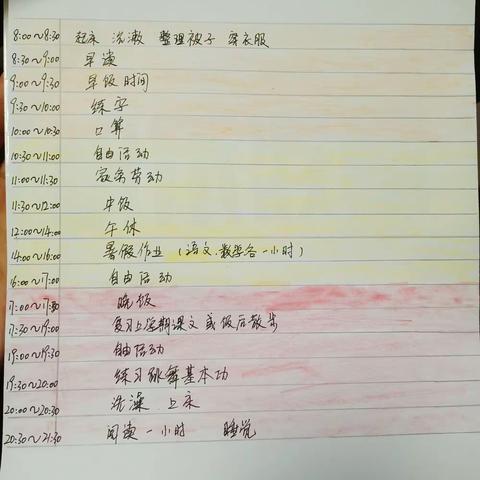 8:00~8:30 起床 洗漱 整理被子 穿衣服
8:30~9:00 早读
9:00~9:30 早饭时间
9:30~10:00 练字
10:00~10:30 口算
10:30~11:00 自由活动
11:00~11:30 家务劳动
11:30~12:00 中饭
12:00~14:00 午休
14:00~16:00 暑假作业 (语文、数学各一小时)
16:00~17:00 自由活动
17:00~17:30 晚饭
17:30~19:00 复习上学期课文 或饭后散步
19:00~19:30 自由活动
19:30~20:00 练习跳舞基本功
20:00~20:30 洗澡 上床
20:30~21:30 阅读一小时 睡觉